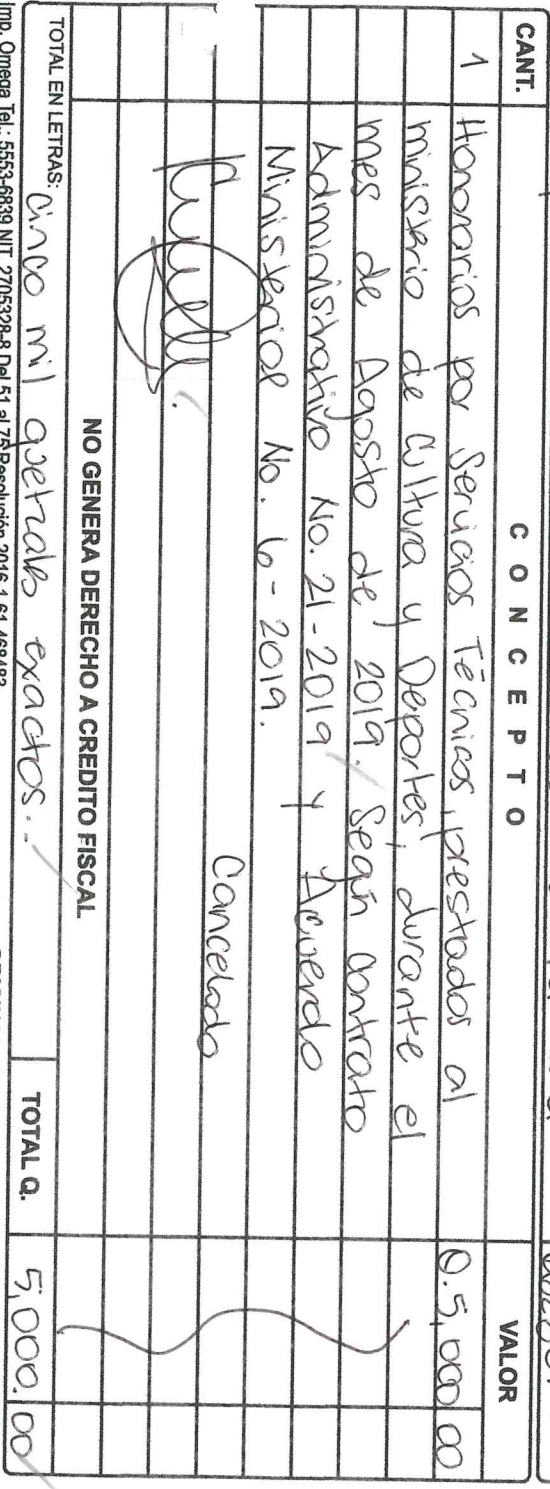 CANT. CONCEPTO VALOR
1 Honorarios por Servicios Técnicos, prestados al Q.5,000 00
ministerio de Cultura y Deportes, durante el
mes de Agosto de 2019. Según Contrato
Administrativo No. 21-2019 y Acuerdo
Ministerial No. 6-2019.
Cancelado
NO GENERA DERECHO A CREDITO FISCAL
TOTAL EN LETRAS: Cinco mil quetzales exactos.- TOTAL Q. 5,000.00
Imp. Omega Tel.: 5553-6839 NIT. 2705328-8 Del 51 al 75 Resolución 2016-1-61-468482